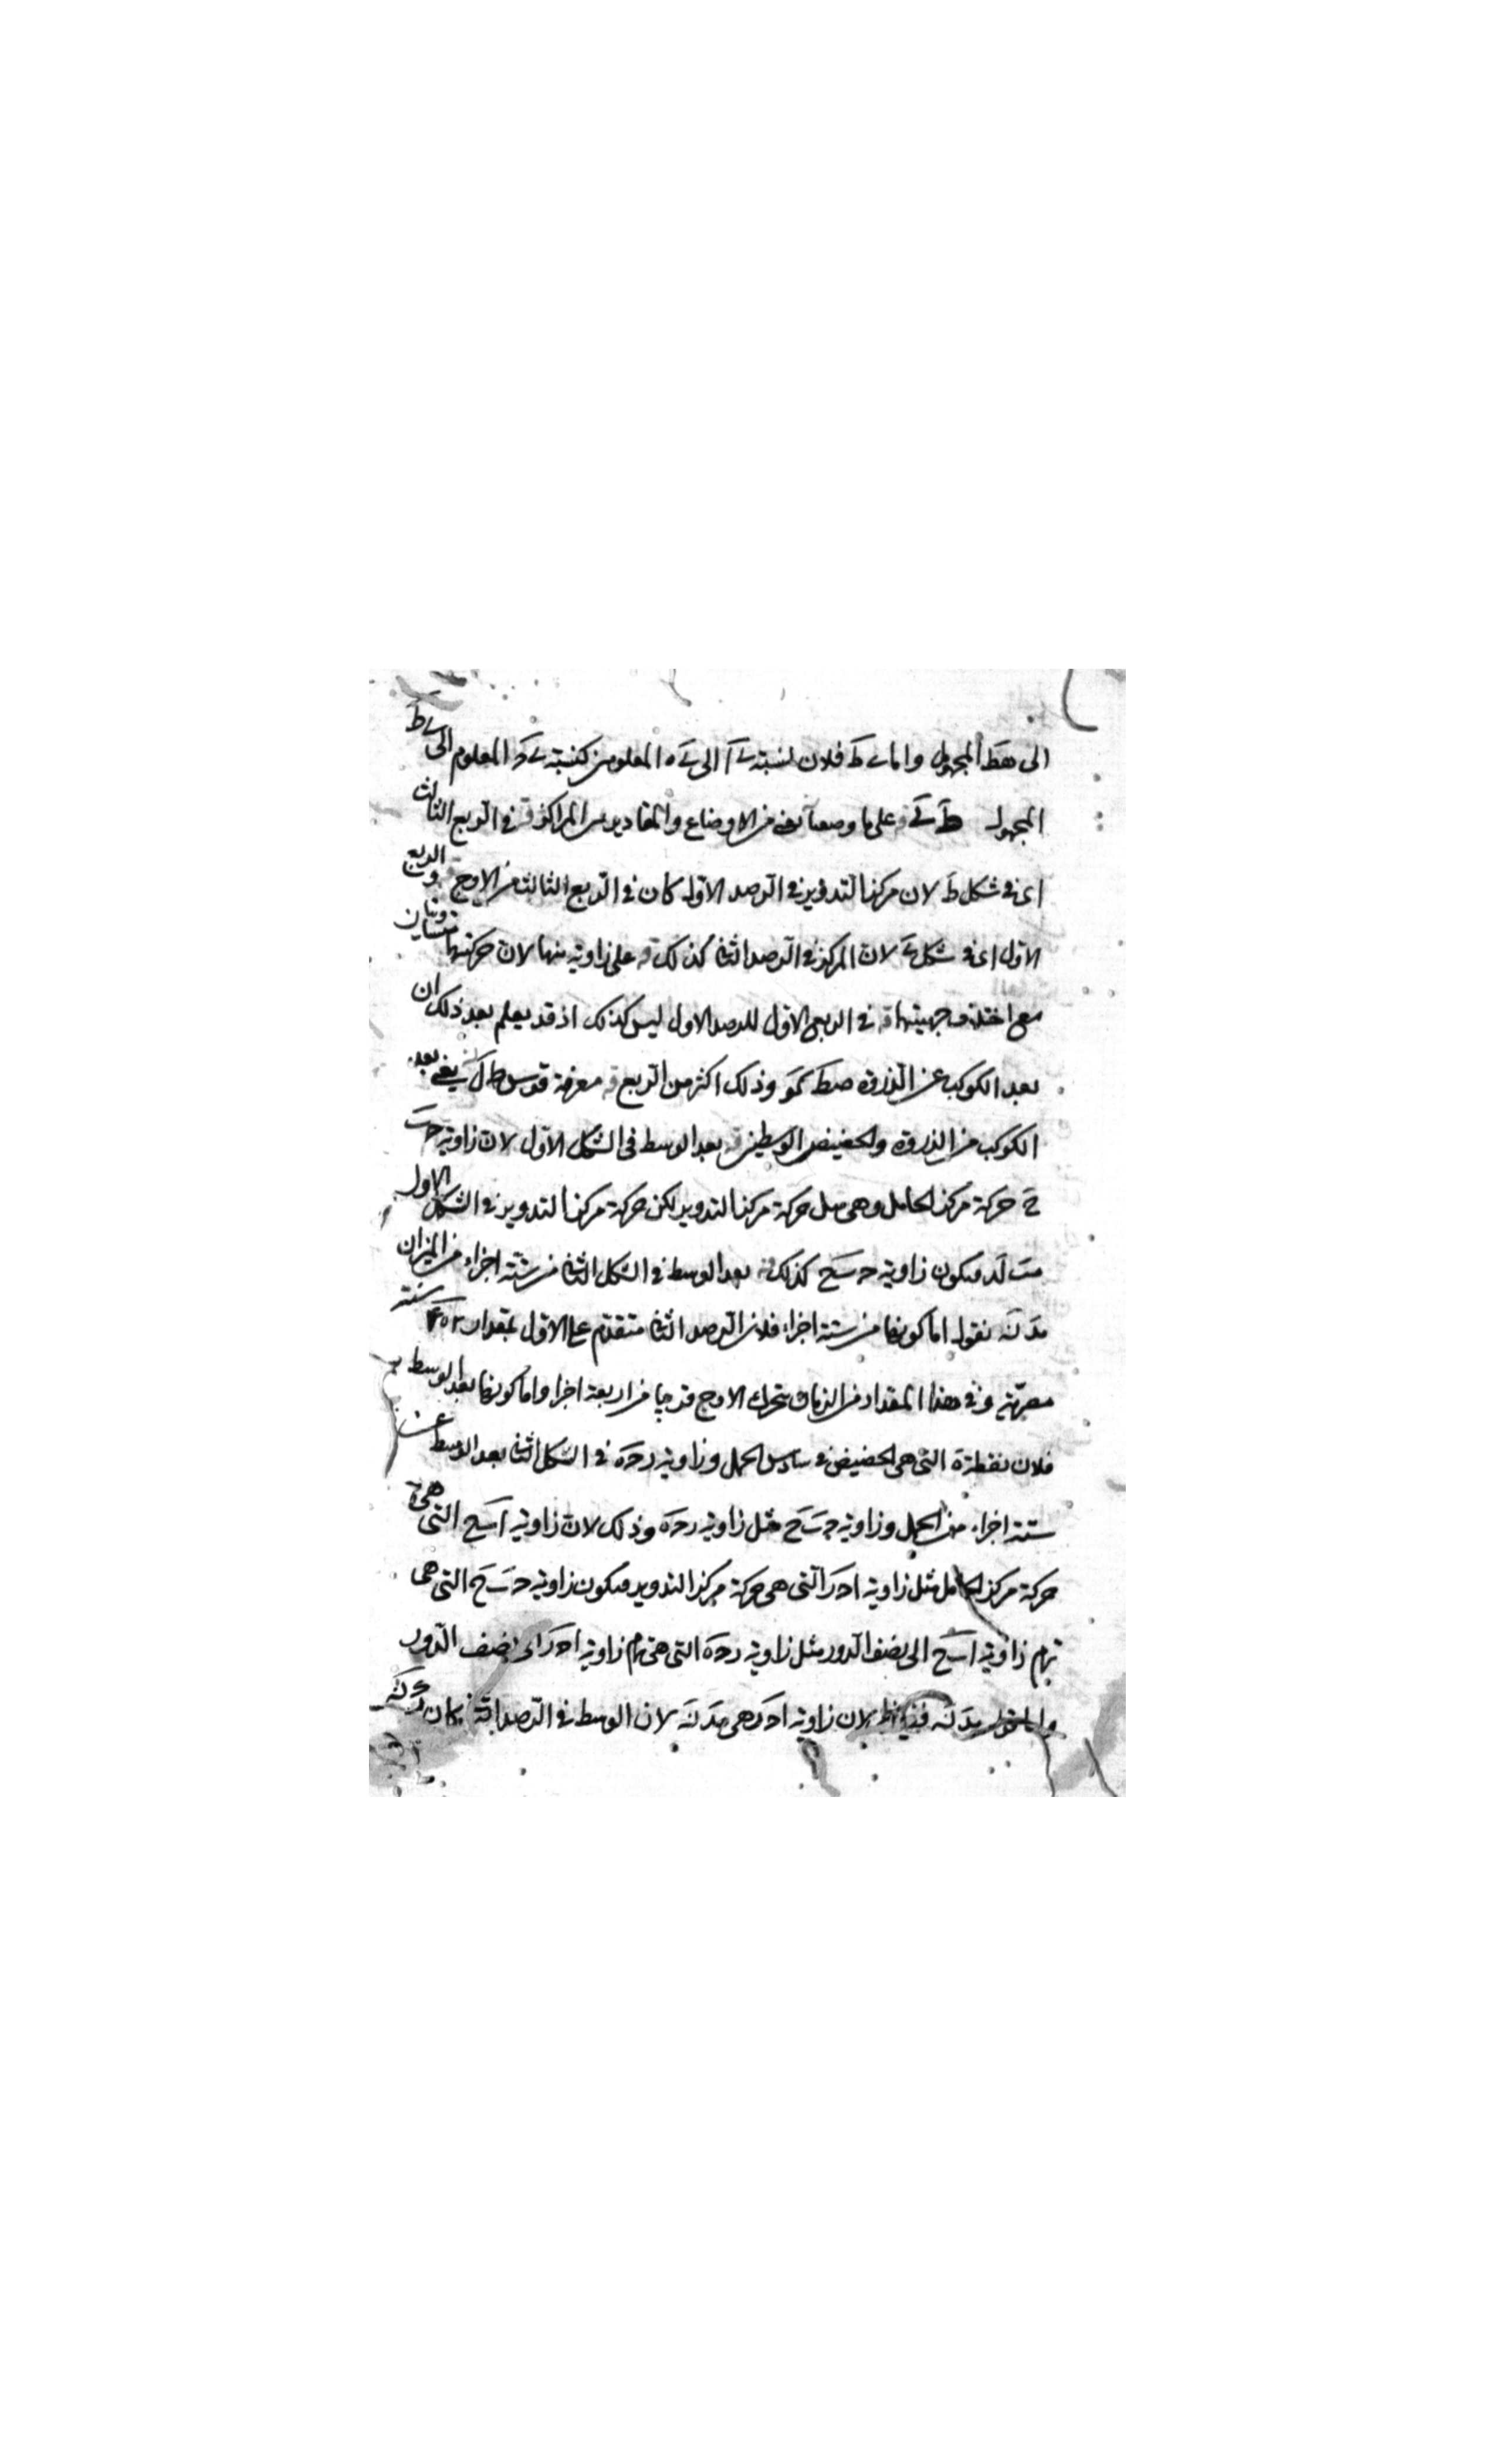 الى هط المجهول واما ے ط فلان نسبة ے ا الى ے ه المعلومين كنسبة ے د المعلوم الى ے ط
المجهول ط ے قه على ما وصفنا يعني من الاوضاع والمقادير بين المراكز قه في الربع الثالث
اى في شكل ط لان مركز التدوير في الرصد الاول كان في الربع الثالث من الاوج قه و الربع
الاول اى في شكل ے لان المركز في الرصد الثاني كذلك قه على زاوية منها لان حركتيهما متساويتان
مع اختلاف جهتيهما قه في الربع الاول للرصد الاول ليس كذلك اذ قد يعلم بعد ذلك ان
بعد الكوكب عن الذروة صط كو وذلك اكثر من الربع قه معرفة قوس ط ك يعني بعد
الكوكب من الذروة والحضيض الوسطين قه بعد الوسط في الشكل الاول لان زاوية حے
ح حركة مركز الحامل وهي مثل حركة مركز التدوير لكن حركة مركز التدوير في الشكل الاول
لد فيكون زاوية حے ح كذلك قه بعد الوسط في الشكل الثاني من ستة اجزاء من الميزان
مد نه نقول اما كونها من ستة اجزاء فلان الرصد الثاني متقدم على الاول بمقدار ٤٠٢ سنة
مصرية وفي هذا المقدار من الزمان يتحرك الاوج قريبا من اربعة اجزا واما كونها بعد الوسط
فلان نقطة ه التي هي الحضيض في سادس الحمل وزاوية ر د ه في الشكل الثاني بعد الوسط عن
ستة اجزاء من الحمل وزاوية حے ح مثل زاوية ر د ه وذلك لان زاوية اے ح التي هي
حركة مركز الحامل مثل زاوية ا د ر التي هي حركة مركز التدوير فيكون زاوية حے ح التي هي
تمام زاوية اے ح الى نصف الدور مثل زاوية ر د ه التي هي تمام زاوية ا د ر الى نصف الدور
مد نه لان زاوية ا د ر هي مد نه لان الوسط في الرصد الثاني كان